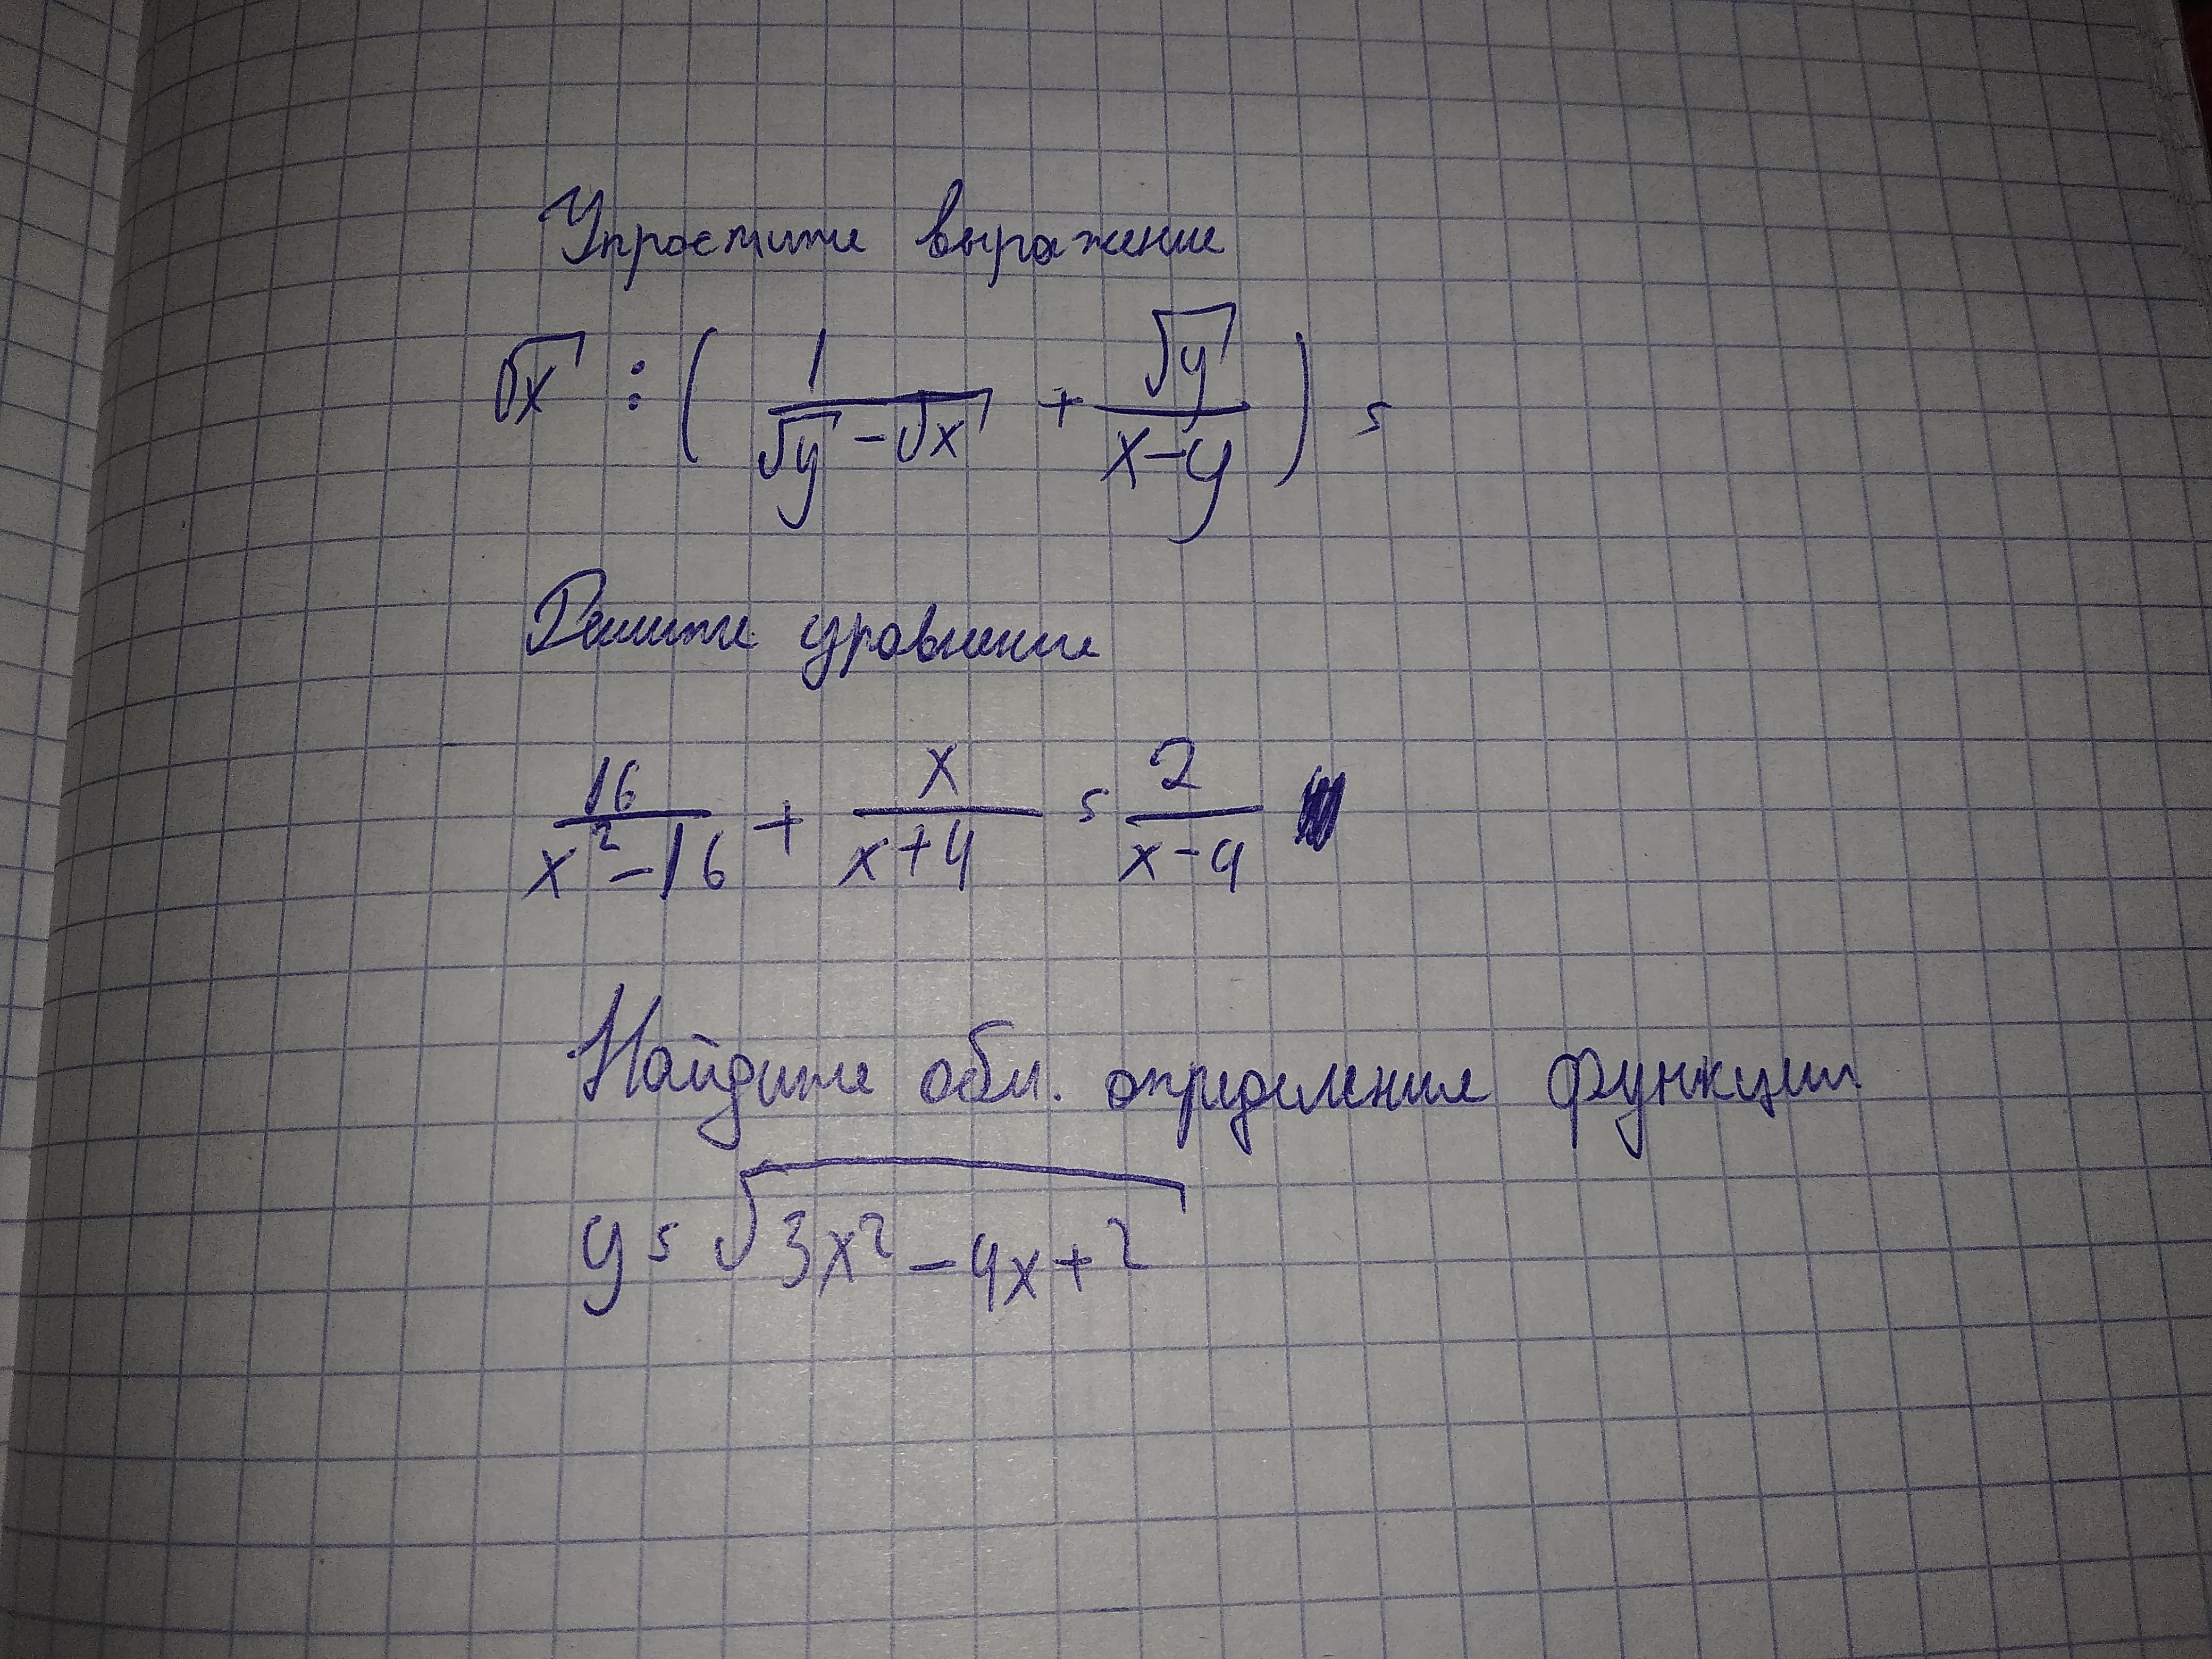 Упростите выражение
√x : (1/(√y - √x) + √y/(x-y)) =
Решите уравнение
16/(x²-16) + x/(x+4) = 2/(x-4)
Найдите обл. определение функции
y = √(3x² - 4x + 2)